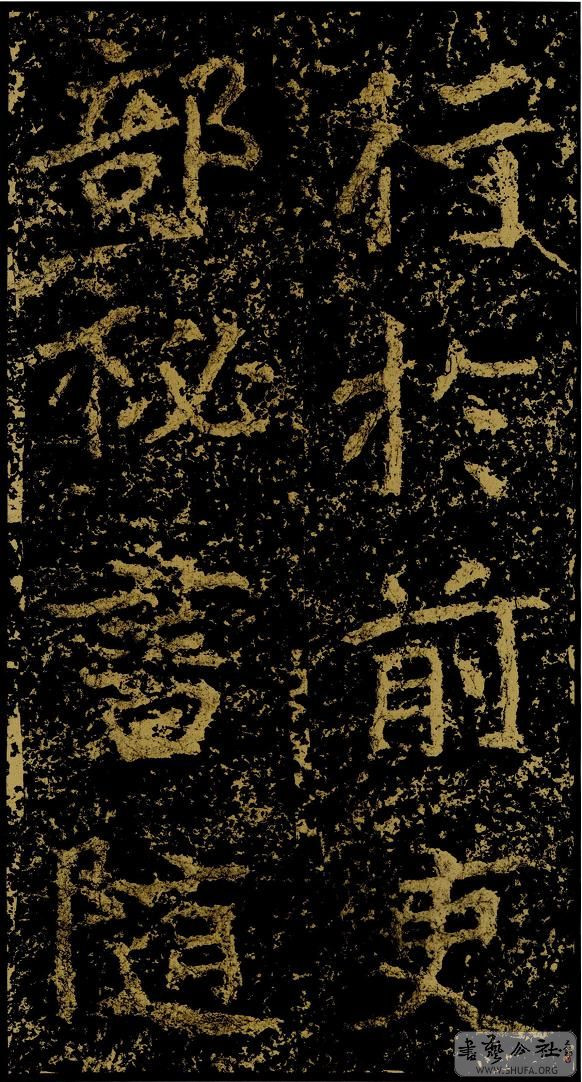 行於前吏
部秘書随
書藝公社
WWW.SHUFA.ORG